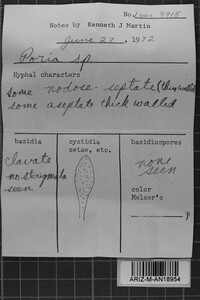 No. Loan 9915
Notes by Kenneth J Martin
June 27, 1972
Poria sp.
Hyphal characters
some nodose-septate (thin walled)
some aseptate thick walled
basidia
cystidia
setae, etc.
basidiospores
clavate
no sterigmata
seen
none
seen
color
Melzer's
µ
ARIZ-M-AN18954